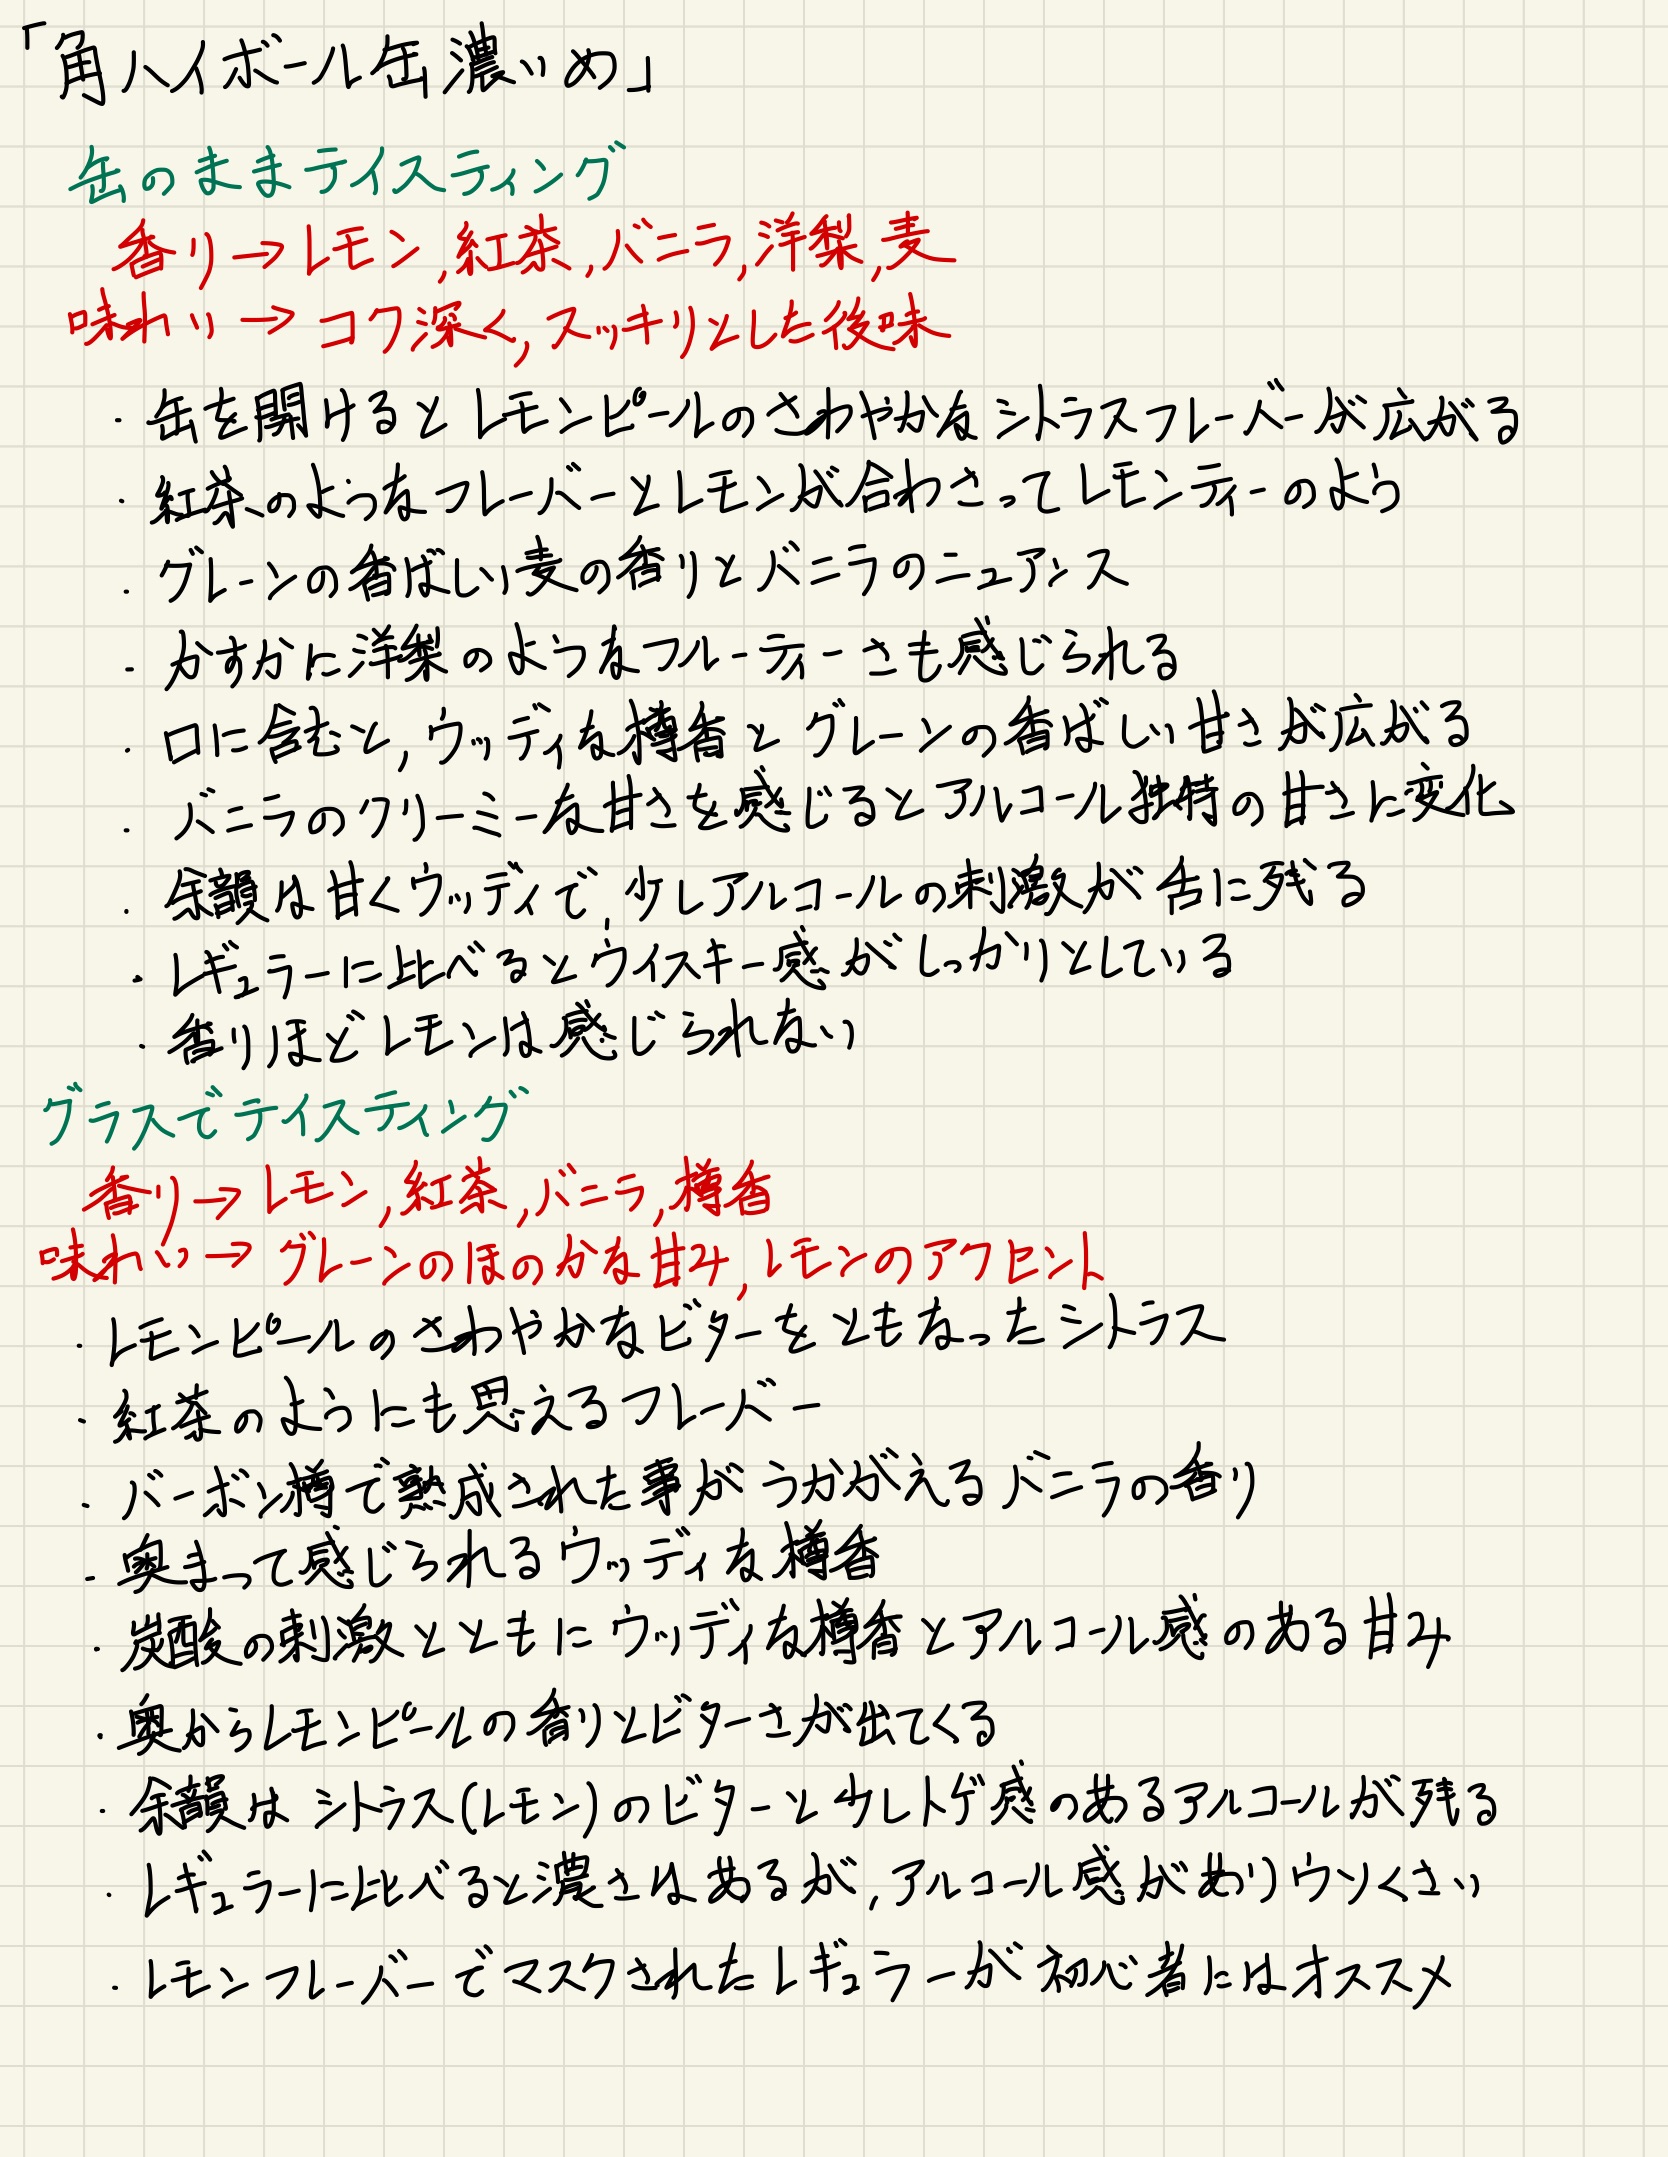 「角ハイボール缶濃いめ」
缶のままテイスティング
香り→レモン,紅茶,バニラ,洋梨,麦
味わい→コク深く,スッキリとした後味
・缶を開けるとレモンピールのさわやかなシトラスフレーバーが広がる
・紅茶のようなフレーバーとレモンが合わさってレモンティーのよう
・グレーンの香ばしい麦の香りとバニラのニュアンス
・かすかに洋梨のようなフルーティーさも感じられる
・口に含むと,ウッディな樽香とグレーンの香ばしい甘さが広がる
・バニラのクリーミーな甘さを感じるとアルコール独特の甘さに変化
・余韻は甘くウッディで,少しアルコールの刺激が舌に残る
・レギュラーに比べるとウイスキー感がしっかりとしている
・香りほどレモンは感じられない
グラスでテイスティング
香り→レモン,紅茶,バニラ,樽香
味わい→グレーンのほのかな甘み,レモンのアクセント
・レモンピールのさわやかなビターをともなったシトラス
・紅茶のようにも思えるフレーバー
・バーボン樽で熟成された事がうかがえるバニラの香り
・奥まって感じられるウッディな樽香
・炭酸の刺激とともにウッディな樽香とアルコール感のある甘み
・奥からレモンピールの香りとビターさが出てくる
・余韻はシトラス(レモン)のビターと少しトゲ感のあるアルコールが残る
・レギュラーに比べると濃さはあるが,アルコール感がありウソくさい
・レモンフレーバーでマスクされたレギュラーが初心者にはオススメ